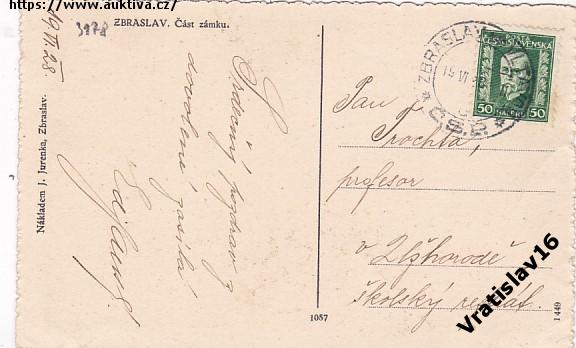 https://www.auktiva.cz/
19 VI. 28.
3978
ZBRASLAV. Část zámku.
Nákladem J. Jurenka, Zbraslav.
Srdečný pozdrav z
dovolené zasílá
POŠTA
ČESKOSLOVENSKÁ
50 HALÉŘŮ 50
ZBRASLAV
19 VI
* Č.S.P. *
Pan
Trochta,
profesor
v Užhorodě
školský referát.
1057
1449
Vratislav16